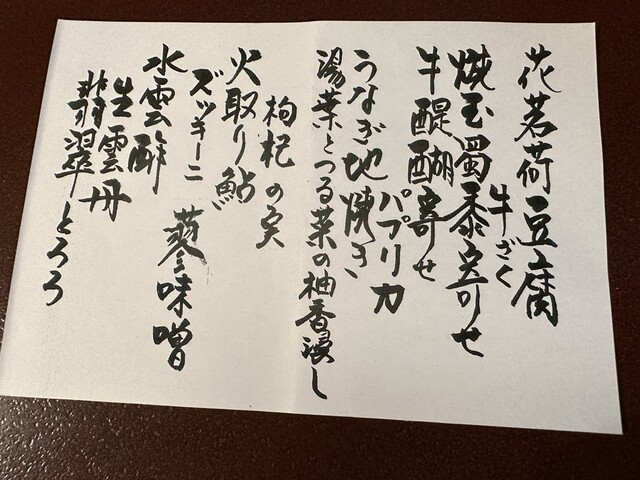 花茗荷豆腐
牛ざく
焼玉蜀黍寄せ
牛醍醐寄せ
パプリカ
うなぎ地焼き
湯葉とつる菜の柚香浸し
枸杞の実
火取り鮎
ズッキーニ
蓼味噌
水雲酢
生雲丹
翡翠とろろ